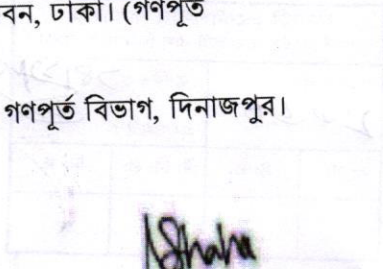 বন, ঢাকা। (গণপূর্ত
গণপূর্ত বিভাগ, দিনাজপুর।